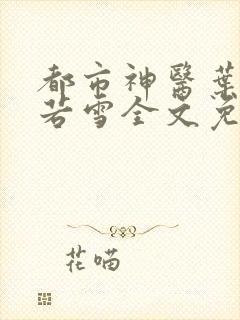 都市神醫葉
若雪全文免
花喵